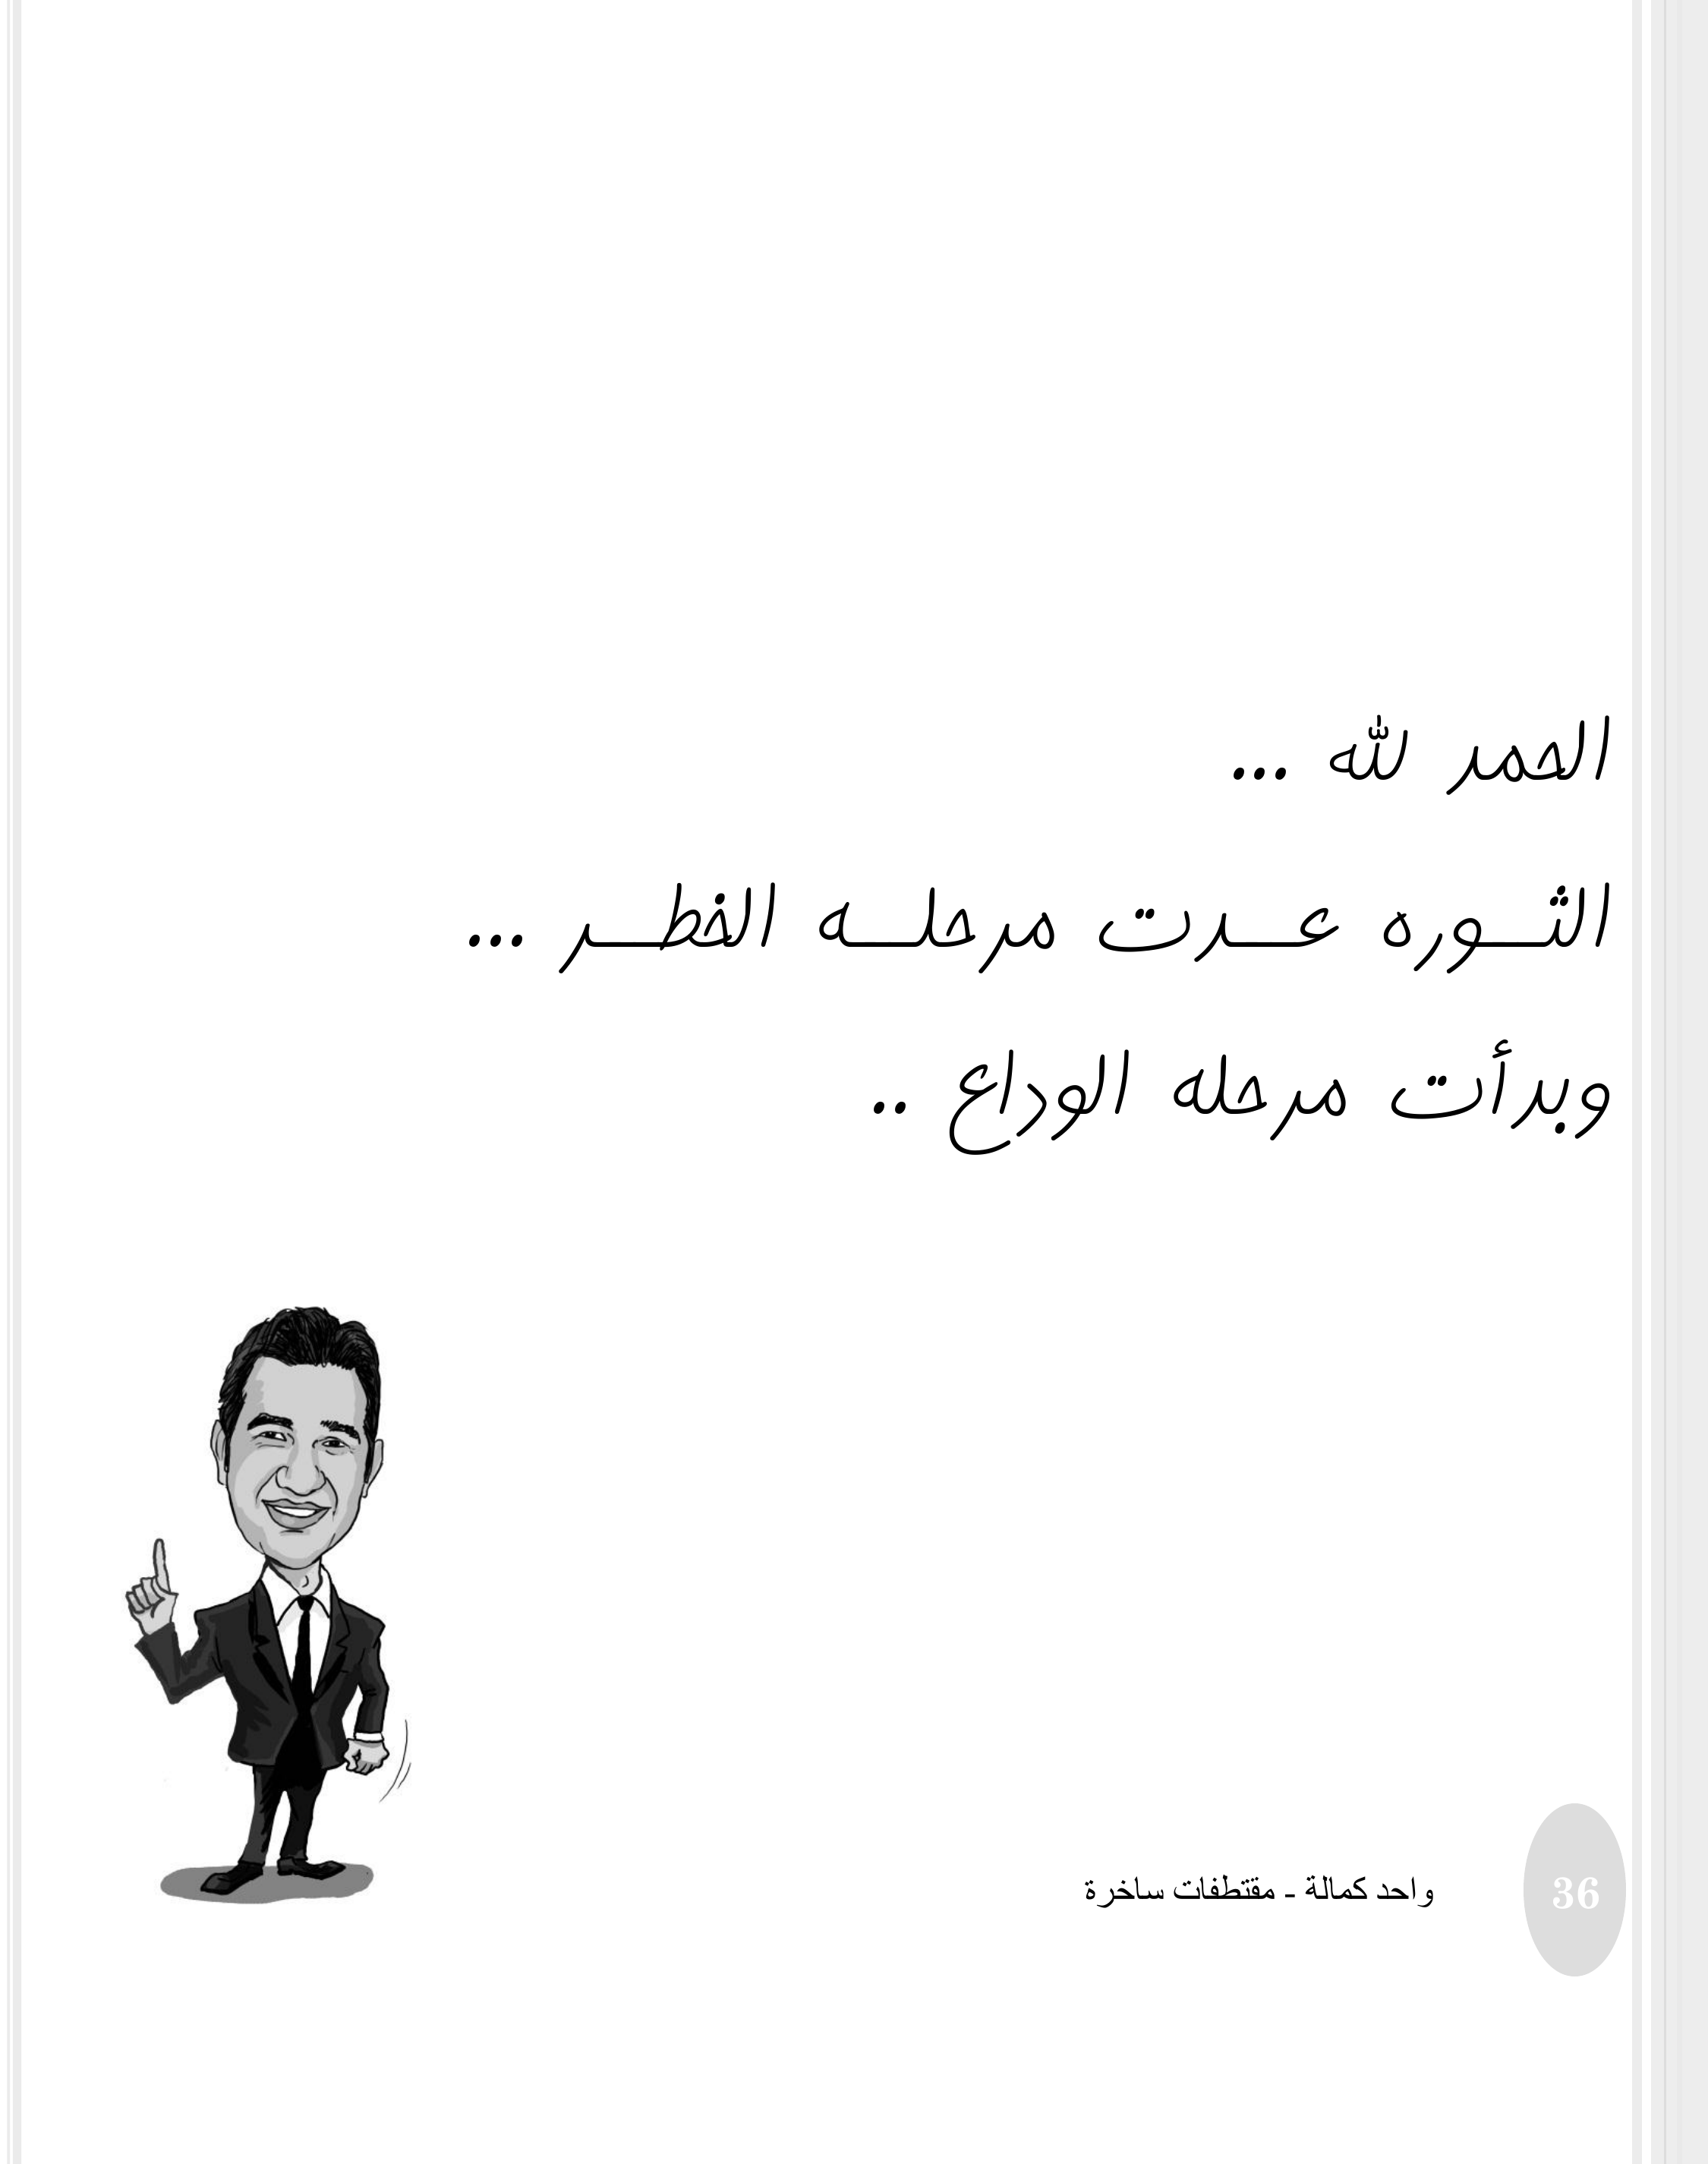 الحمد لله ...
الثـــوره عـــدت مرحلـــه الخطـــر ...
وبدأت مرحله الوداع ..
واحد كمالة - مقتطفات ساخرة
36